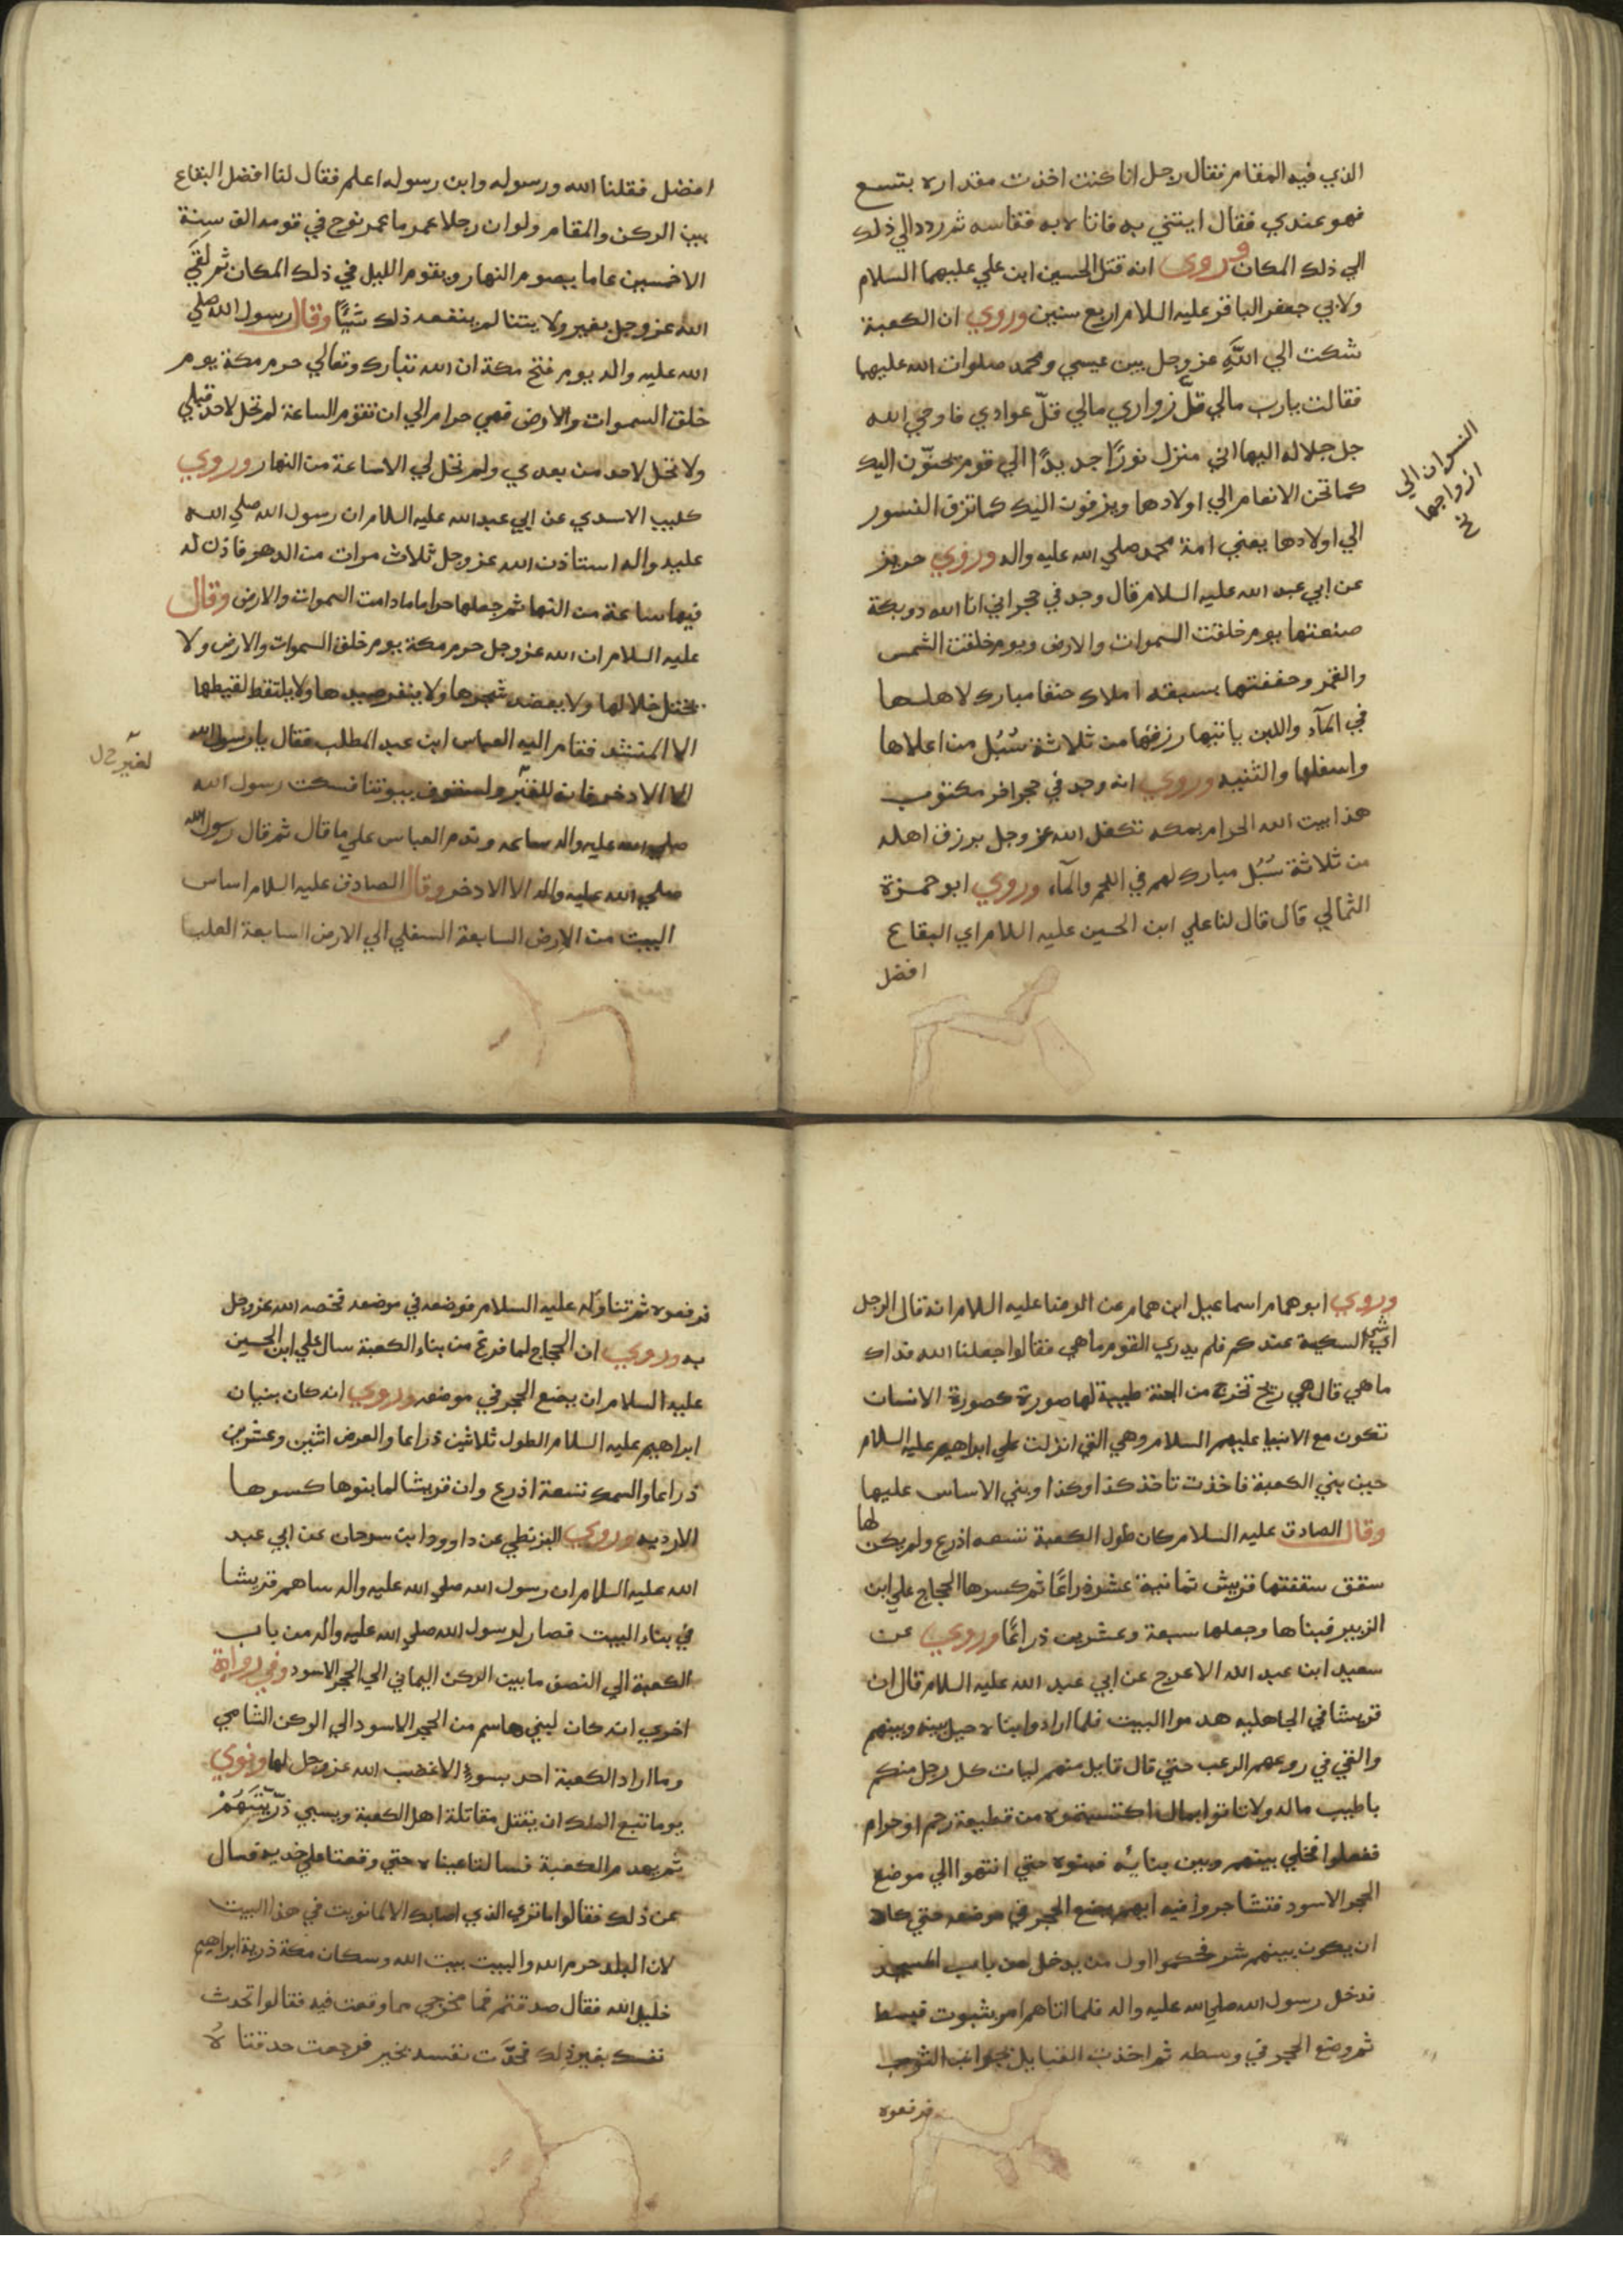 الذي فيه المقام فقال رجل انا كنت اخذت مقداره بتسع
فهو عندي فقال ايتني به فاتاه به فقاسه ثم ردد الي ذلك
الي ذلك المكان وروي انه قتل الحسين ابن علي عليهما السلام
ولابي جعفر الباقر عليه السلام اربع سنين وروي ان الكعبة
شكت الي اللَّهِ عز وجل بين عيسي ومحمد صلوات الله عليهما
فقالت يارب مالي قلّ زواري مالي قلّ عوادي فاوحي الله
جل جلاله اليها اني منزل نورًا جديدًا الي قوم يحنّون اليك
كما تحن الانعام الي اولادها ويزفون اليك كما تزف النسور
الي اولادها يعني امة محمد صلي الله عليه واله وروي حريز
عن ابي عبد الله عليه السلام قال وجد في حجر اني انا الله ذو بكة
صنعتها يوم خلقت السموات والارض ويوم خلقت الشمس
والقمر وحففتها بسبعه املاك حنفا مبارك لاهلها
في المآء واللبن ياتيها رزقها من ثلاثة سُبُل من اعلاها
واسفلها والثنيه وروي انه وجد في حجر اخر مكتوب
هذا بيت الله الحرام بمكه تكفل الله عز وجل برزق اهله
من ثلاثة سُبُل مبارك لهم في اللحم والمآء وروي ابو حمزة
الثمالي قال قال لنا علي ابن الحسين عليه السلام اي البقاع
افضل
النسوان الي
ازواجها
خ
افضل فقلنا الله ورسوله وابن رسوله اعلم فقال لنا افضل البقاع
بين الركن والمقام ولو ان رجلا عمر ما عمر نوح في قومه الف سنة
الا خمسين عاما يصوم النهار ويقوم الليل في ذلك المكان ثم لقي
الله عز وجل بغير ولايتنا لم ينفعه ذلك شيًا وقال رسول الله صلي
الله عليه واله يوم فتح مكة ان الله تبارك وتعالي حرم مكة يوم
خلق السموات والارض فهي حرام الي ان تقوم الساعة لم تحل لاحد قبلي
ولا تحل لاحد من بعدي ولم تحل لي الا ساعة من النهار وروي
كليب الاسدي عن ابي عبد الله عليه السلام ان رسول الله صلي الله
عليه واله استاذن الله عز وجل ثلاث مرات من الدهر فاذن له
فيها ساعة من النها ثم جعلها حراما ما دامت السموات والارض وقال
عليه السلام ان الله عز وجل حرم مكة يوم خلق السموات والارض ولا
يختل خلالها ولا يعضد شجرها ولا ينفر صيدها ولا يلتقط لقيطها
الا المنشد فقام اليه العباس ابن عبد المطلب فقال يا رسول الله
الا الادخر فانه للقبر ولسقوف بيوتنا فسكت رسول الله
صلي الله عليه واله ساعه وندم العباس علي ما قال ثم قال رسول الله
صلي الله عليه واله الا الادخر وقال الصادق عليه السلام اساس
البيت من الارض السابعة السفلي الي الارض السابعة العليا
وروي ابو همام اسماعيل ابن همام عن الرضا عليه السلام انه قال الرجل
اي شي السكينة عندكم فلم يدري القوم ما هي فقالوا جعلنا الله فداك
ما هي قال هي ريح تخرج من الجنة طيبة لها صورة كصورة الانسان
تكون مع الانبيا عليهم السلام وهي التي انزلت علي ابراهيم عليه السلام
حين بني الكعبة فاخذت تاخذ كذا وكذا وبني الاساس عليها
وقال الصادق عليه السلام كان طول الكعبة تسعه اذرع ولم يكن لها
سقف سقفتها قريش ثمانية عشر ذراعًا ثم كسرها الحجاج علي ابن
الزبير فبناها وجعلها سبعة وعشرين ذراعًا وروي عن
سعيد ابن عبد الله الاعرج عن ابي عبد الله عليه السلام قال ان
قريشا في الجاهليه هدموا البيت فلما ارادوا بناه حيل بينه وبينهم
والقي في روعهم الرعب حتي قال قايل منهم ليات كل رجل منكم
باطيب ماله ولا تاتوا بمال اكتسبتموه من قطيعة رحم او حرام
ففعلوا فخلي بينهم وبين بنايه فبنوه حتي انتهوا الي موضع
الحجر الاسود فتشاجروا فيه ايهم يضع الحجر في موضعه حتي كاد
ان يكون بينهم شر فحكموا اول من يدخل من باب المسجد
فدخل رسول الله صلي الله عليه واله فلما اتاهم امر بثوب فبسط
ثم وضع الحجر في وسطه ثم اخذت القبايل بجوانب الثوب
فرفعوه
فرفعوه ثم تناوله عليه السلام فوضعه في موضعه فخصه الله عز وجل
به وروي ان الحجاج لما فرغ من بناء الكعبة سال علي ابن الحسين
عليه السلام ان يضع الحجر في موضعه وروي انه كان بنيان
ابراهيم عليه السلام الطول ثلاثين ذراعا والعرض اثنين وعشرين
ذراعا والسمك تسعة اذرع وان قريشا لما بنوها كسوها
الارديه وروي البزنطي عن داوود ابن سرحان عن ابي عبد
الله عليه السلام ان رسول الله صلي الله عليه واله ساهم قريشا
في بناء البيت فصار لرسول الله صلي الله عليه واله من باب
الكعبة الي النصف ما بين الركن اليماني الي الحجر الاسود وفي رواية
اخري انه كان لبني هاشم من الحجر الاسود الي الركن الشامي
وما اراد الكعبة احد بسوءٍ الا غضب الله عز وجل لها ونوي
يوما تبع الملك ان يقتل مقاتلة اهل الكعبة ويسبي ذرّيّتهُمْ
ثم يهدم الكعبة فسالتا عيناه حتي وقعتا علي خديه فسال
عن ذلك فقالوا ما نري الذي اصابك الا لما نويت في هذا البيت
لان البلد حرم الله والبيت بيت الله وسكان مكة ذرية ابراهيم
خليل الله فقال صدقتم فما مخرجي مما وقعت فيه فقالوا تحدث
نفسك بغير ذلك فحدَّث نفسه بخير فرجعت حدقتا هُ